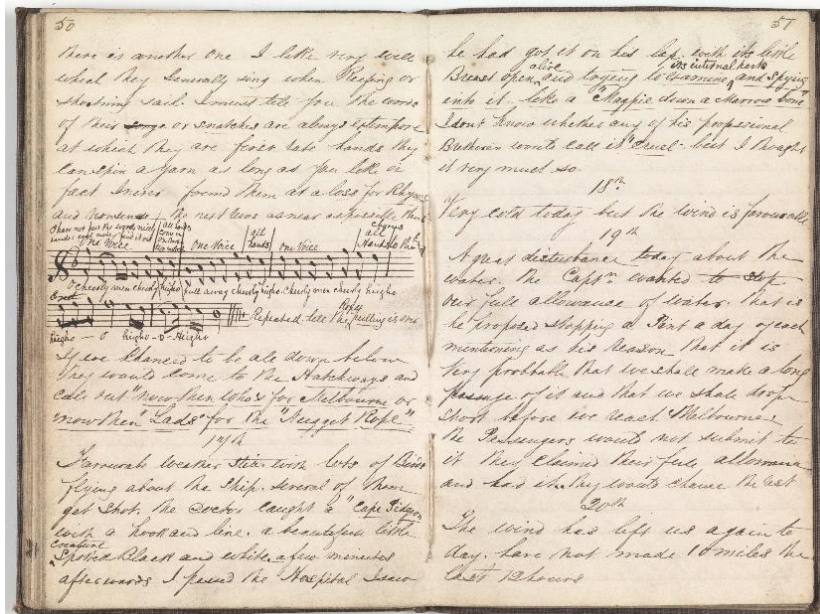 50
there is another one I like very well
which they Generally sing when Reefing or
shortning sail. I must tell you the words
of their songs or snatches are always extempore
at which they are first rate hands they
can spin a yarn as long as you like in
fact I never found them at a loss for Rhyme
and nonsense. the next goes as near as possible thus
I have not put the words in
One Voice
all hands
One Voice
all hands
One Voice
Chorus all Hands
O cheerly men cheerly higho
full away cheerly higho cheerly men cheerly higho
higho — O higho - O - Higho
Repeated till the Ropes pulling is over
If we chanced to be all down below
they would come to the Hatchways and
call out "now then who's for Melbourne or
"now then" Lads" for the "Nugget Rope"
17th
Favourable weather still with lots of Birds
flying about the Ship. several of them
got shot. the doctor caught a "Cape Pidgeon
with a hook and line. a beautiful little
creature
Spotted Black and white. a few minutes
afterwards I passed the Hospital I saw
51
he had got it on his lap with its little
Breast open alive and trying to examine its internal parts and Spying
into it like a "Magpie down a Marrow bone"
I dont know whether any of his proffessional
Brethren would call it "Cruel" - but I thought
it very much so.
18th
Very cold today but the wind is favourable
19th
A great disturbance today about the
water. the Captn wanted to stop
our full allowance of water. that is
he proposed stopping a Pint a day of each
mentioning as his Reason that it is
very probable that we shall make a long
passage of it and that we shall drop
short before we reach Melbourne.
the Passengers would not submit to
it they claimed their full allowance
and had it. they would chance the rest
20th
The wind has left us again to
day. have not made 10 miles the
last 12 hours